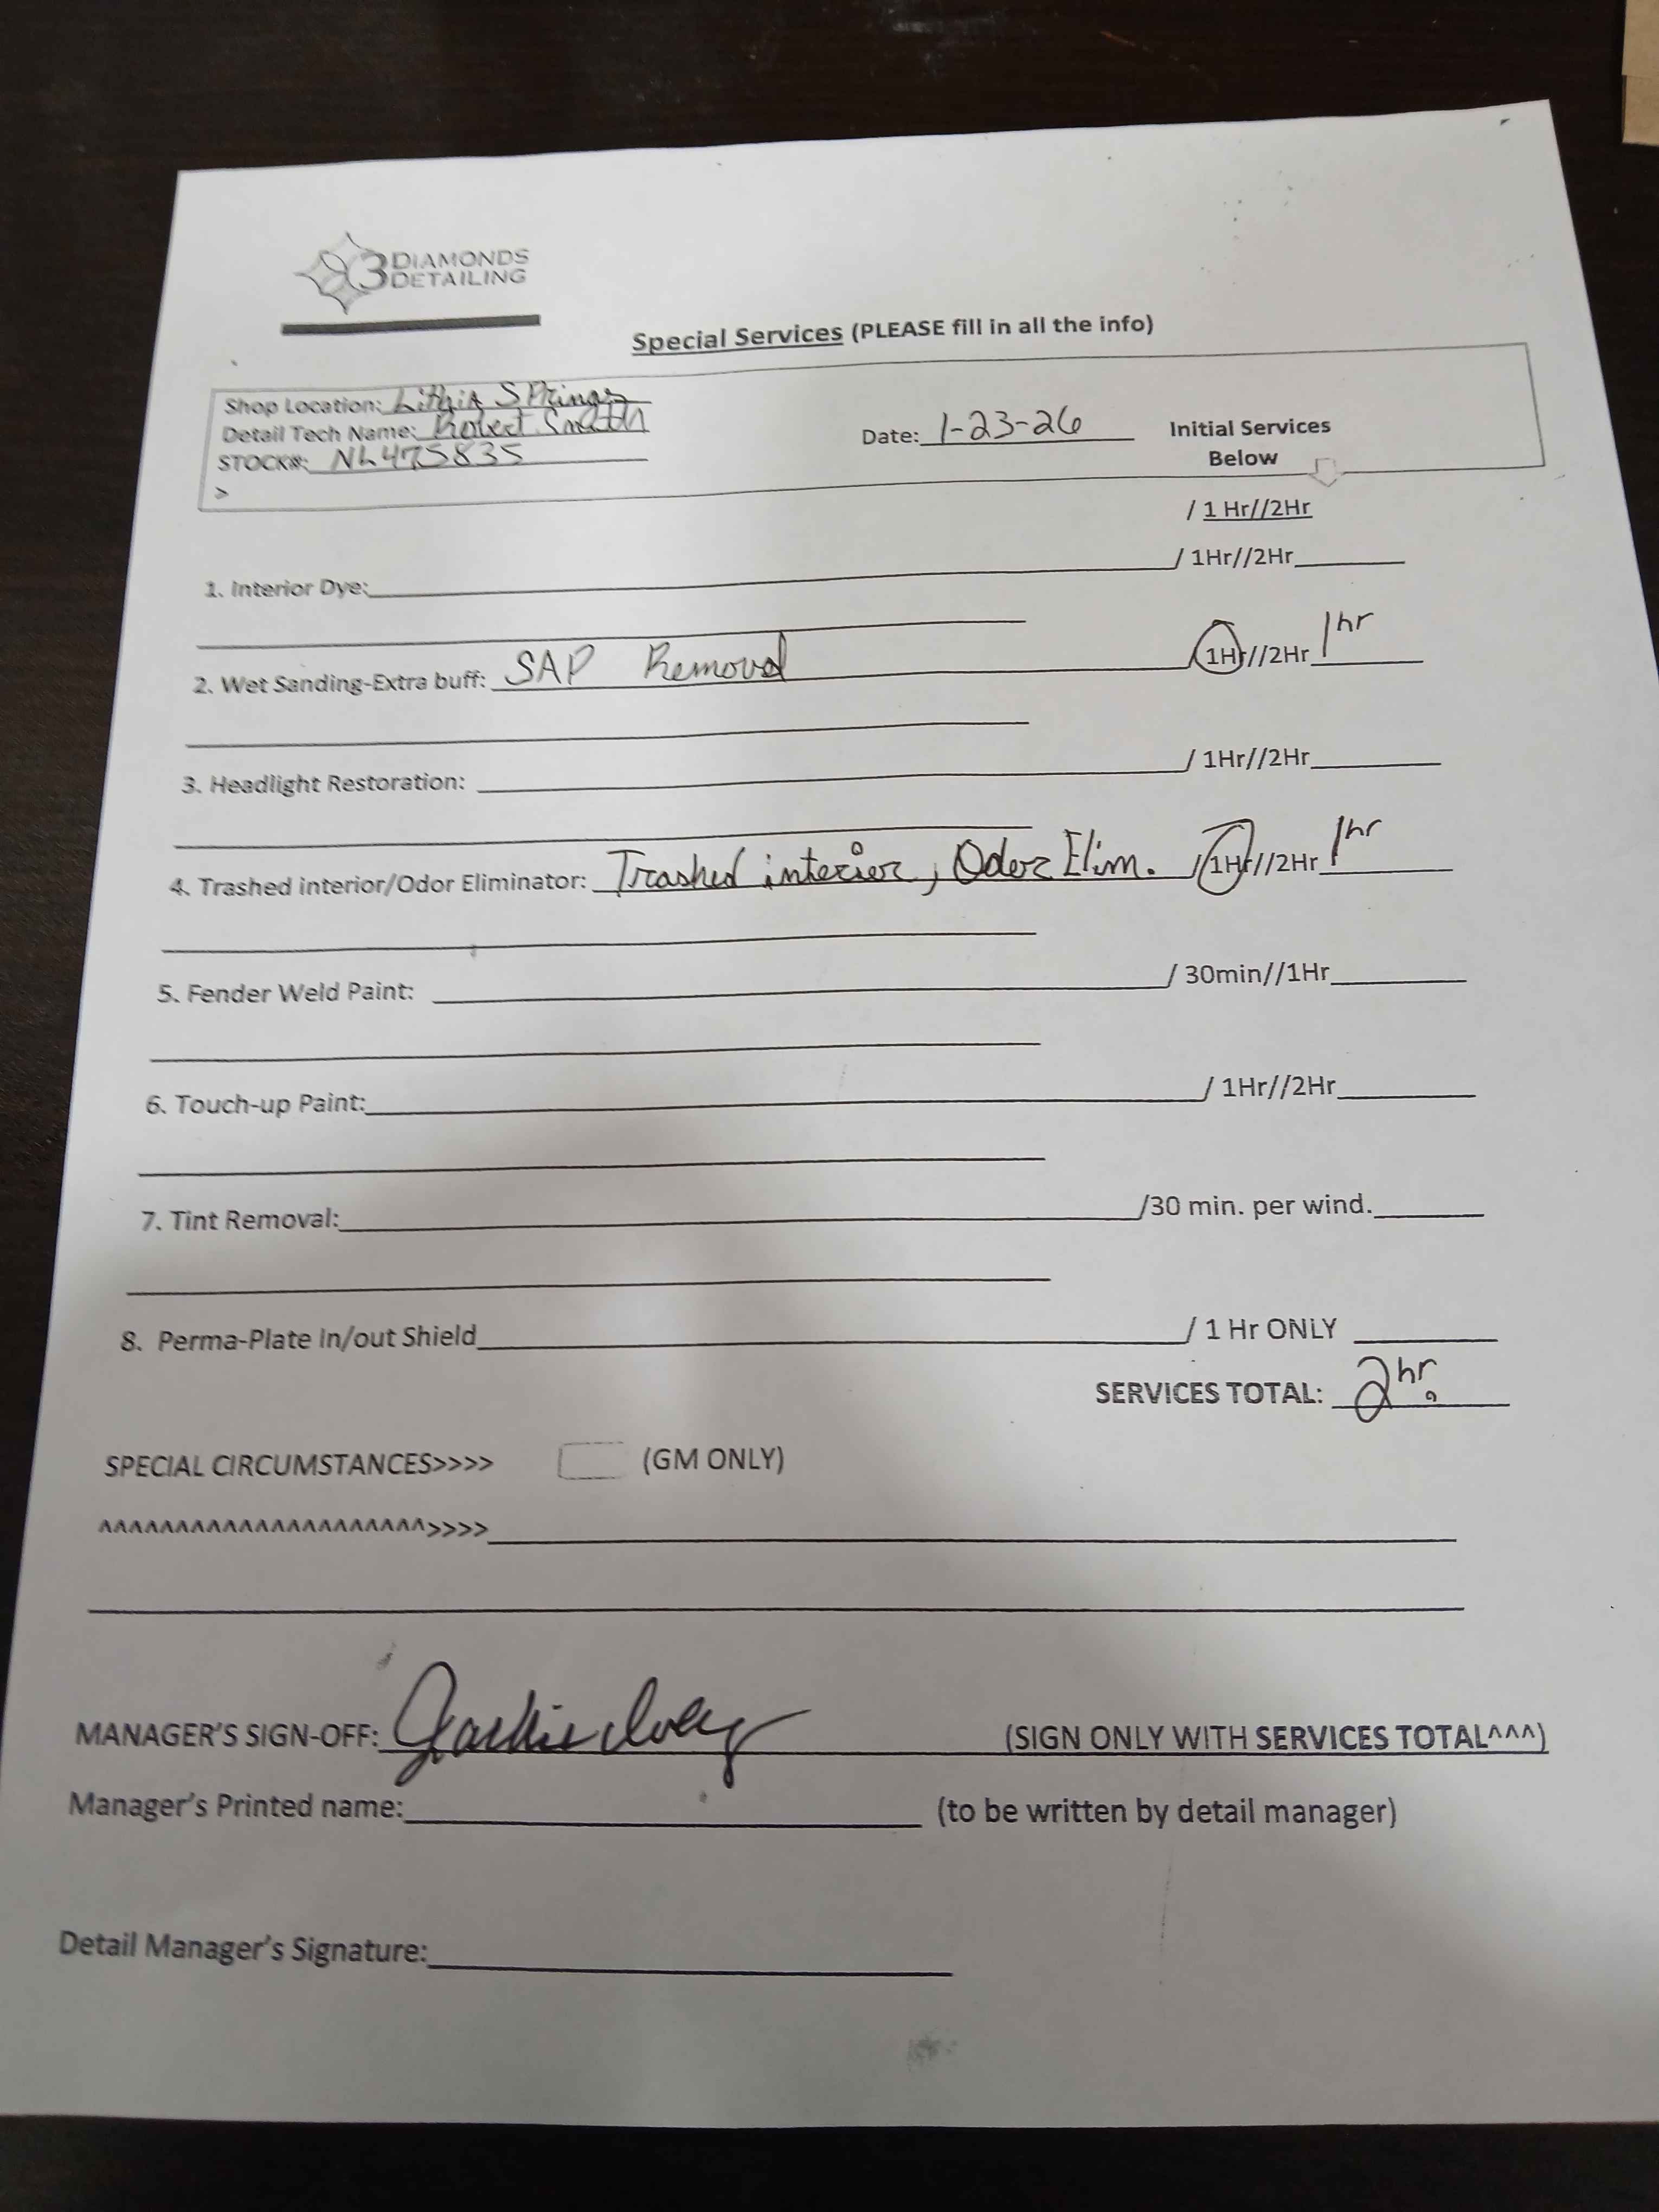 3 DIAMONDS
DETAILING
Special Services (PLEASE fill in all the info)
Shop Location: Lithia SPrings
Detail Tech Name: Robert Smith
STOCK#: NL475835
>
Date: 1-23-26
Initial Services
Below
/ 1 Hr//2Hr
1. Interior Dye: / 1Hr//2Hr
2. Wet Sanding-Extra buff: SAP Removal 1Hr//2Hr 1hr
3. Headlight Restoration: / 1Hr//2Hr
4. Trashed interior/Odor Eliminator: Trashed interior, Odor Elim. / 1Hr//2Hr 1hr
5. Fender Weld Paint: / 30min//1Hr
6. Touch-up Paint: / 1Hr//2Hr
7. Tint Removal: /30 min. per wind.
8. Perma-Plate In/out Shield / 1 Hr ONLY
SERVICES TOTAL: 2hr.
SPECIAL CIRCUMSTANCES>>>> (GM ONLY)
^^^^^^^^^^^^^^^^^^^^^^>>>>
MANAGER'S SIGN-OFF: Jackie (SIGN ONLY WITH SERVICES TOTAL^^^)
Manager's Printed name: (to be written by detail manager)
Detail Manager's Signature: